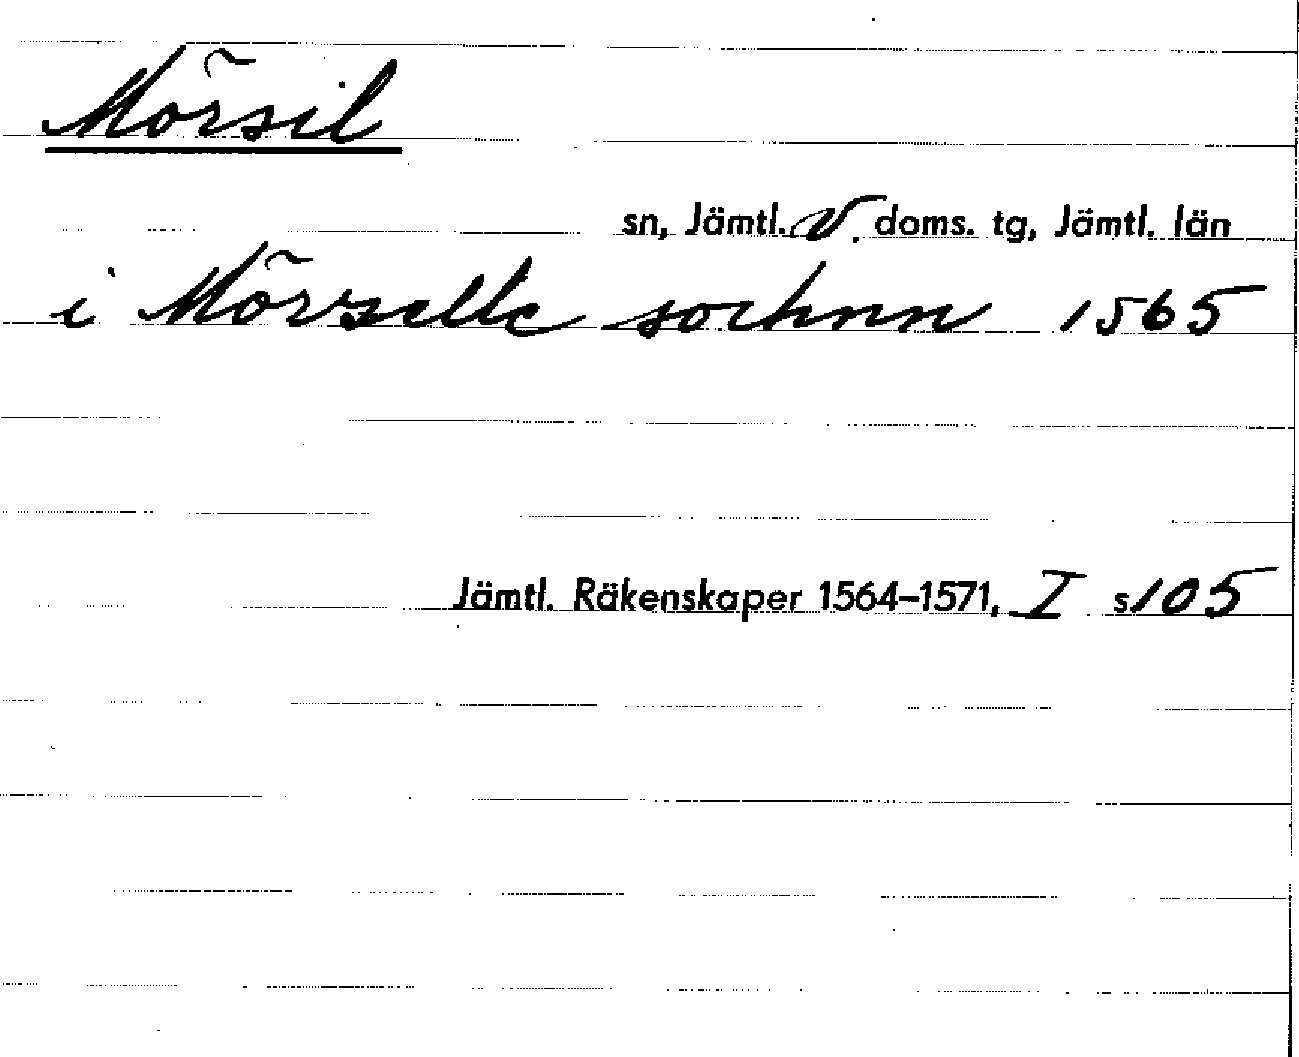 Mörsil
sn, Jämtl. V. doms. tg, Jämtl. län
i Mörszelle sochnn 1565
Jämtl. Räkenskaper 1564–1571, I s 105